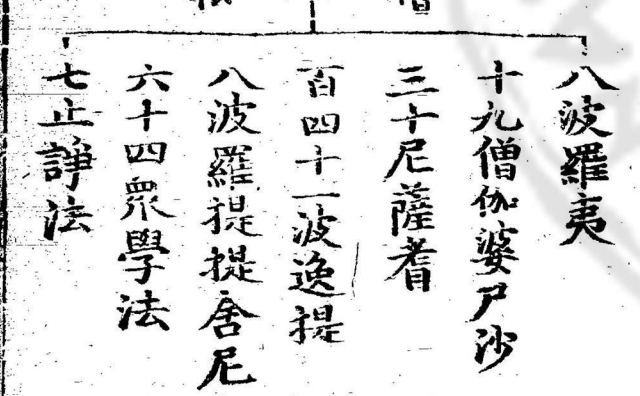 八波羅夷
十九僧伽婆尸沙
三十尼薩耆
百四十一波逸提
八波羅提提舍尼
六十四眾學法
七止諍法